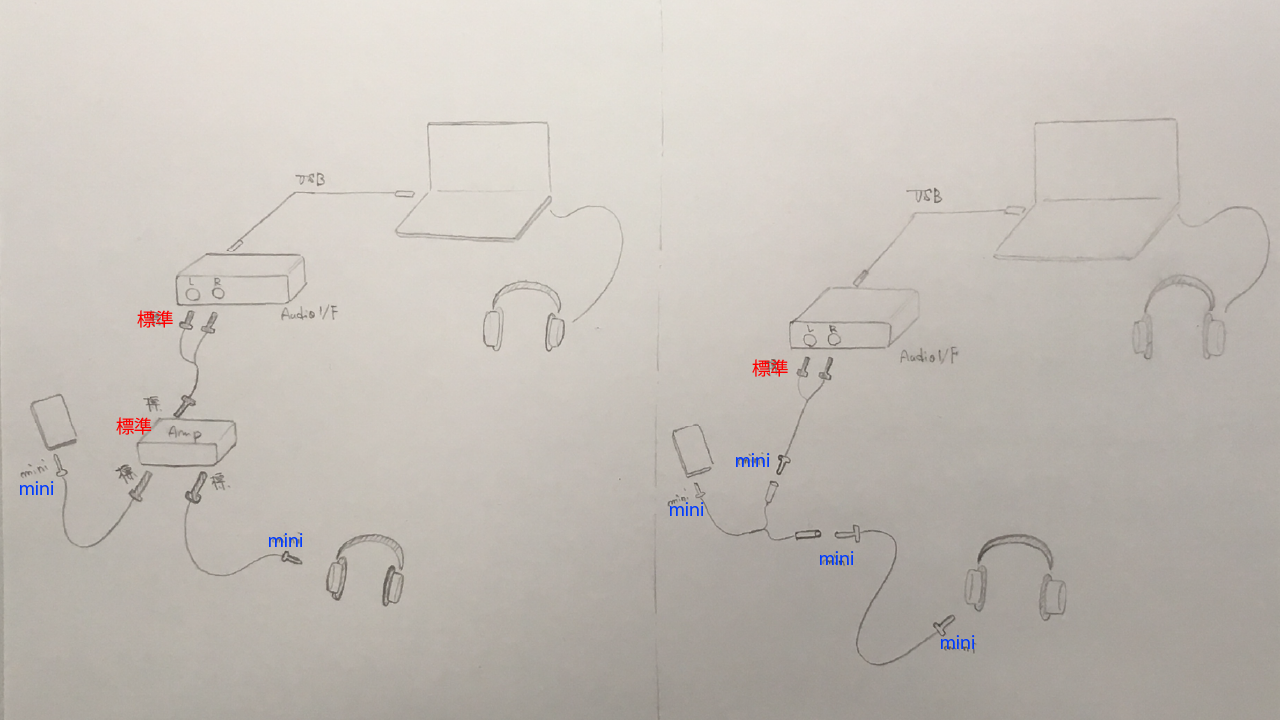 USB
L R
標準
Audio I/F
標.
標準
Amp
mini
mini
標.
標.
mini
USB
L R
Audio I/F
標準
mini
mini
mini
mini
mini